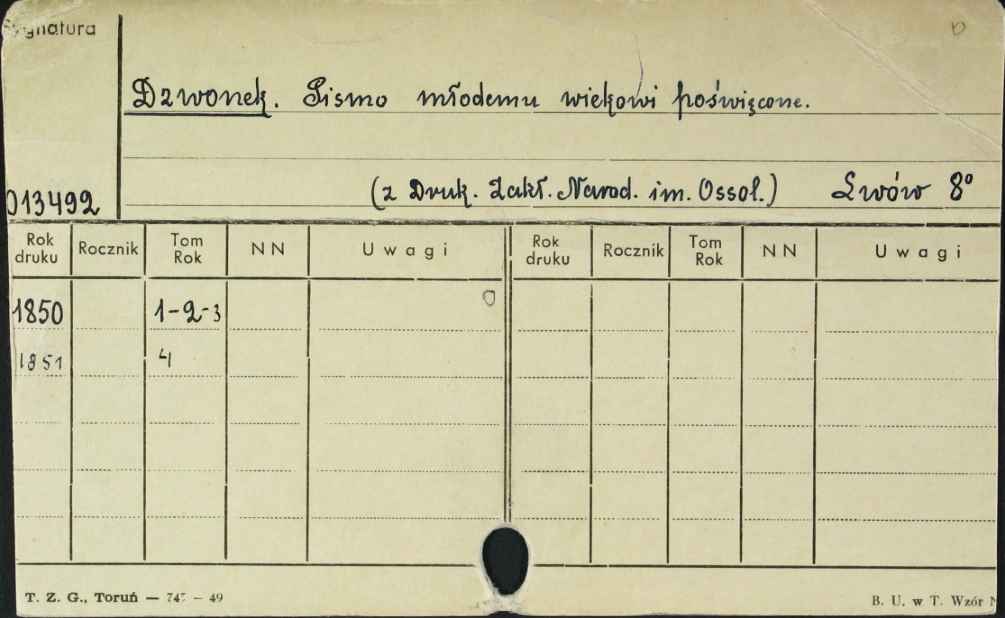 Sygnatura
Dzwonek. Pismo młodemu wiekowi poświęcone.
013492
(z Druk. Zakł. Narod. im. Ossol.) Lwów 8º
Rok druku Rocznik Tom Rok NN Uwagi Rok druku Rocznik Tom Rok NN Uwagi
1850 1-2-3
1851 4
T. Z. G., Toruń — 74 — 49
B. U. w T. Wzór